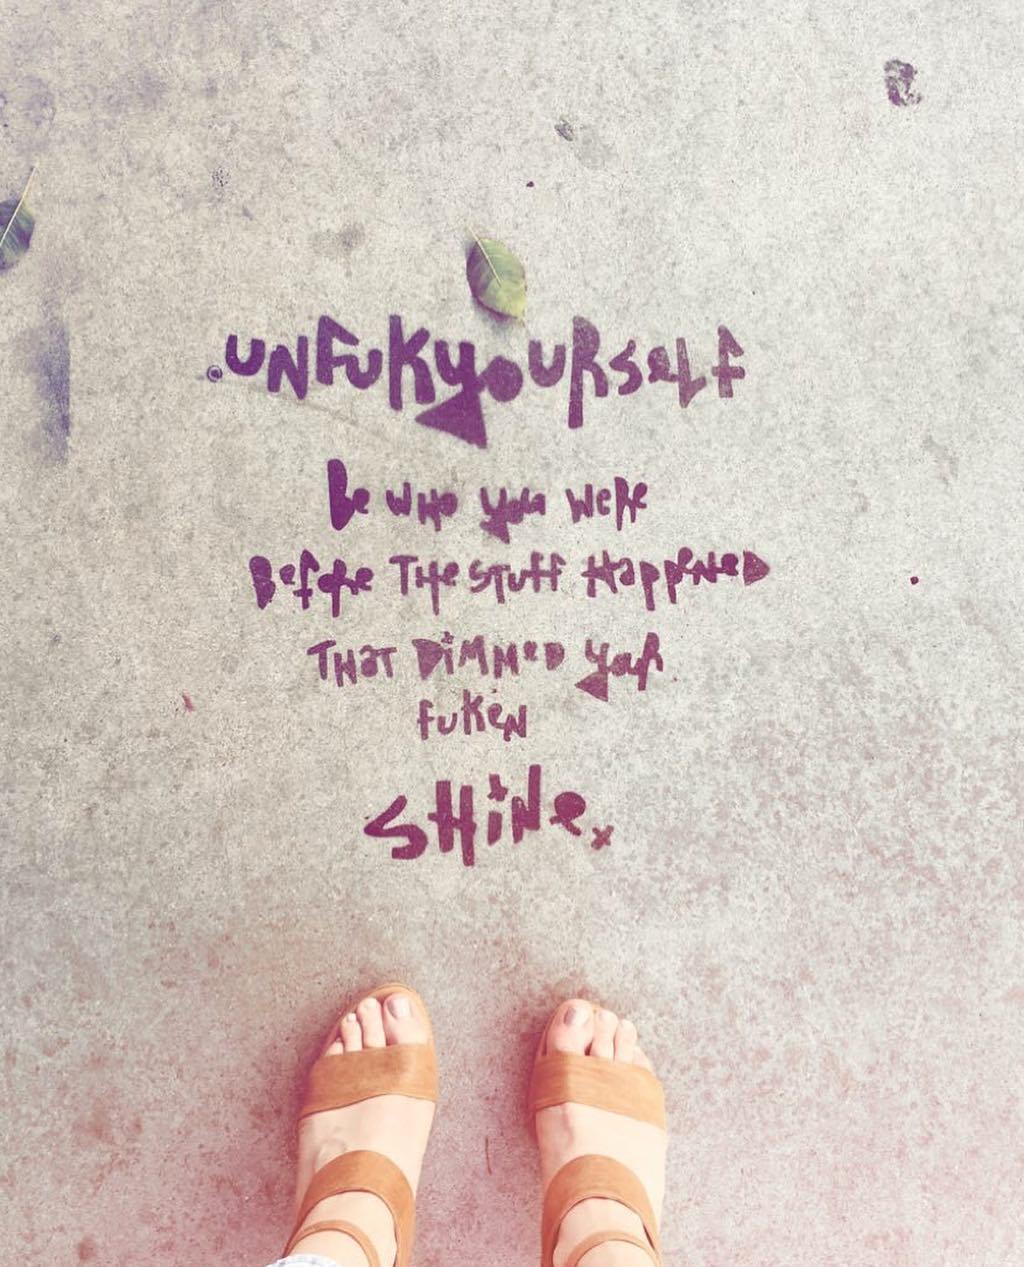 .UNFUKYOURSELF
Be WHO you WeRe
BefoRe THe STUFF HappeNeD
THaT DiMMeD YouR
FUKeN
SHiNe.x